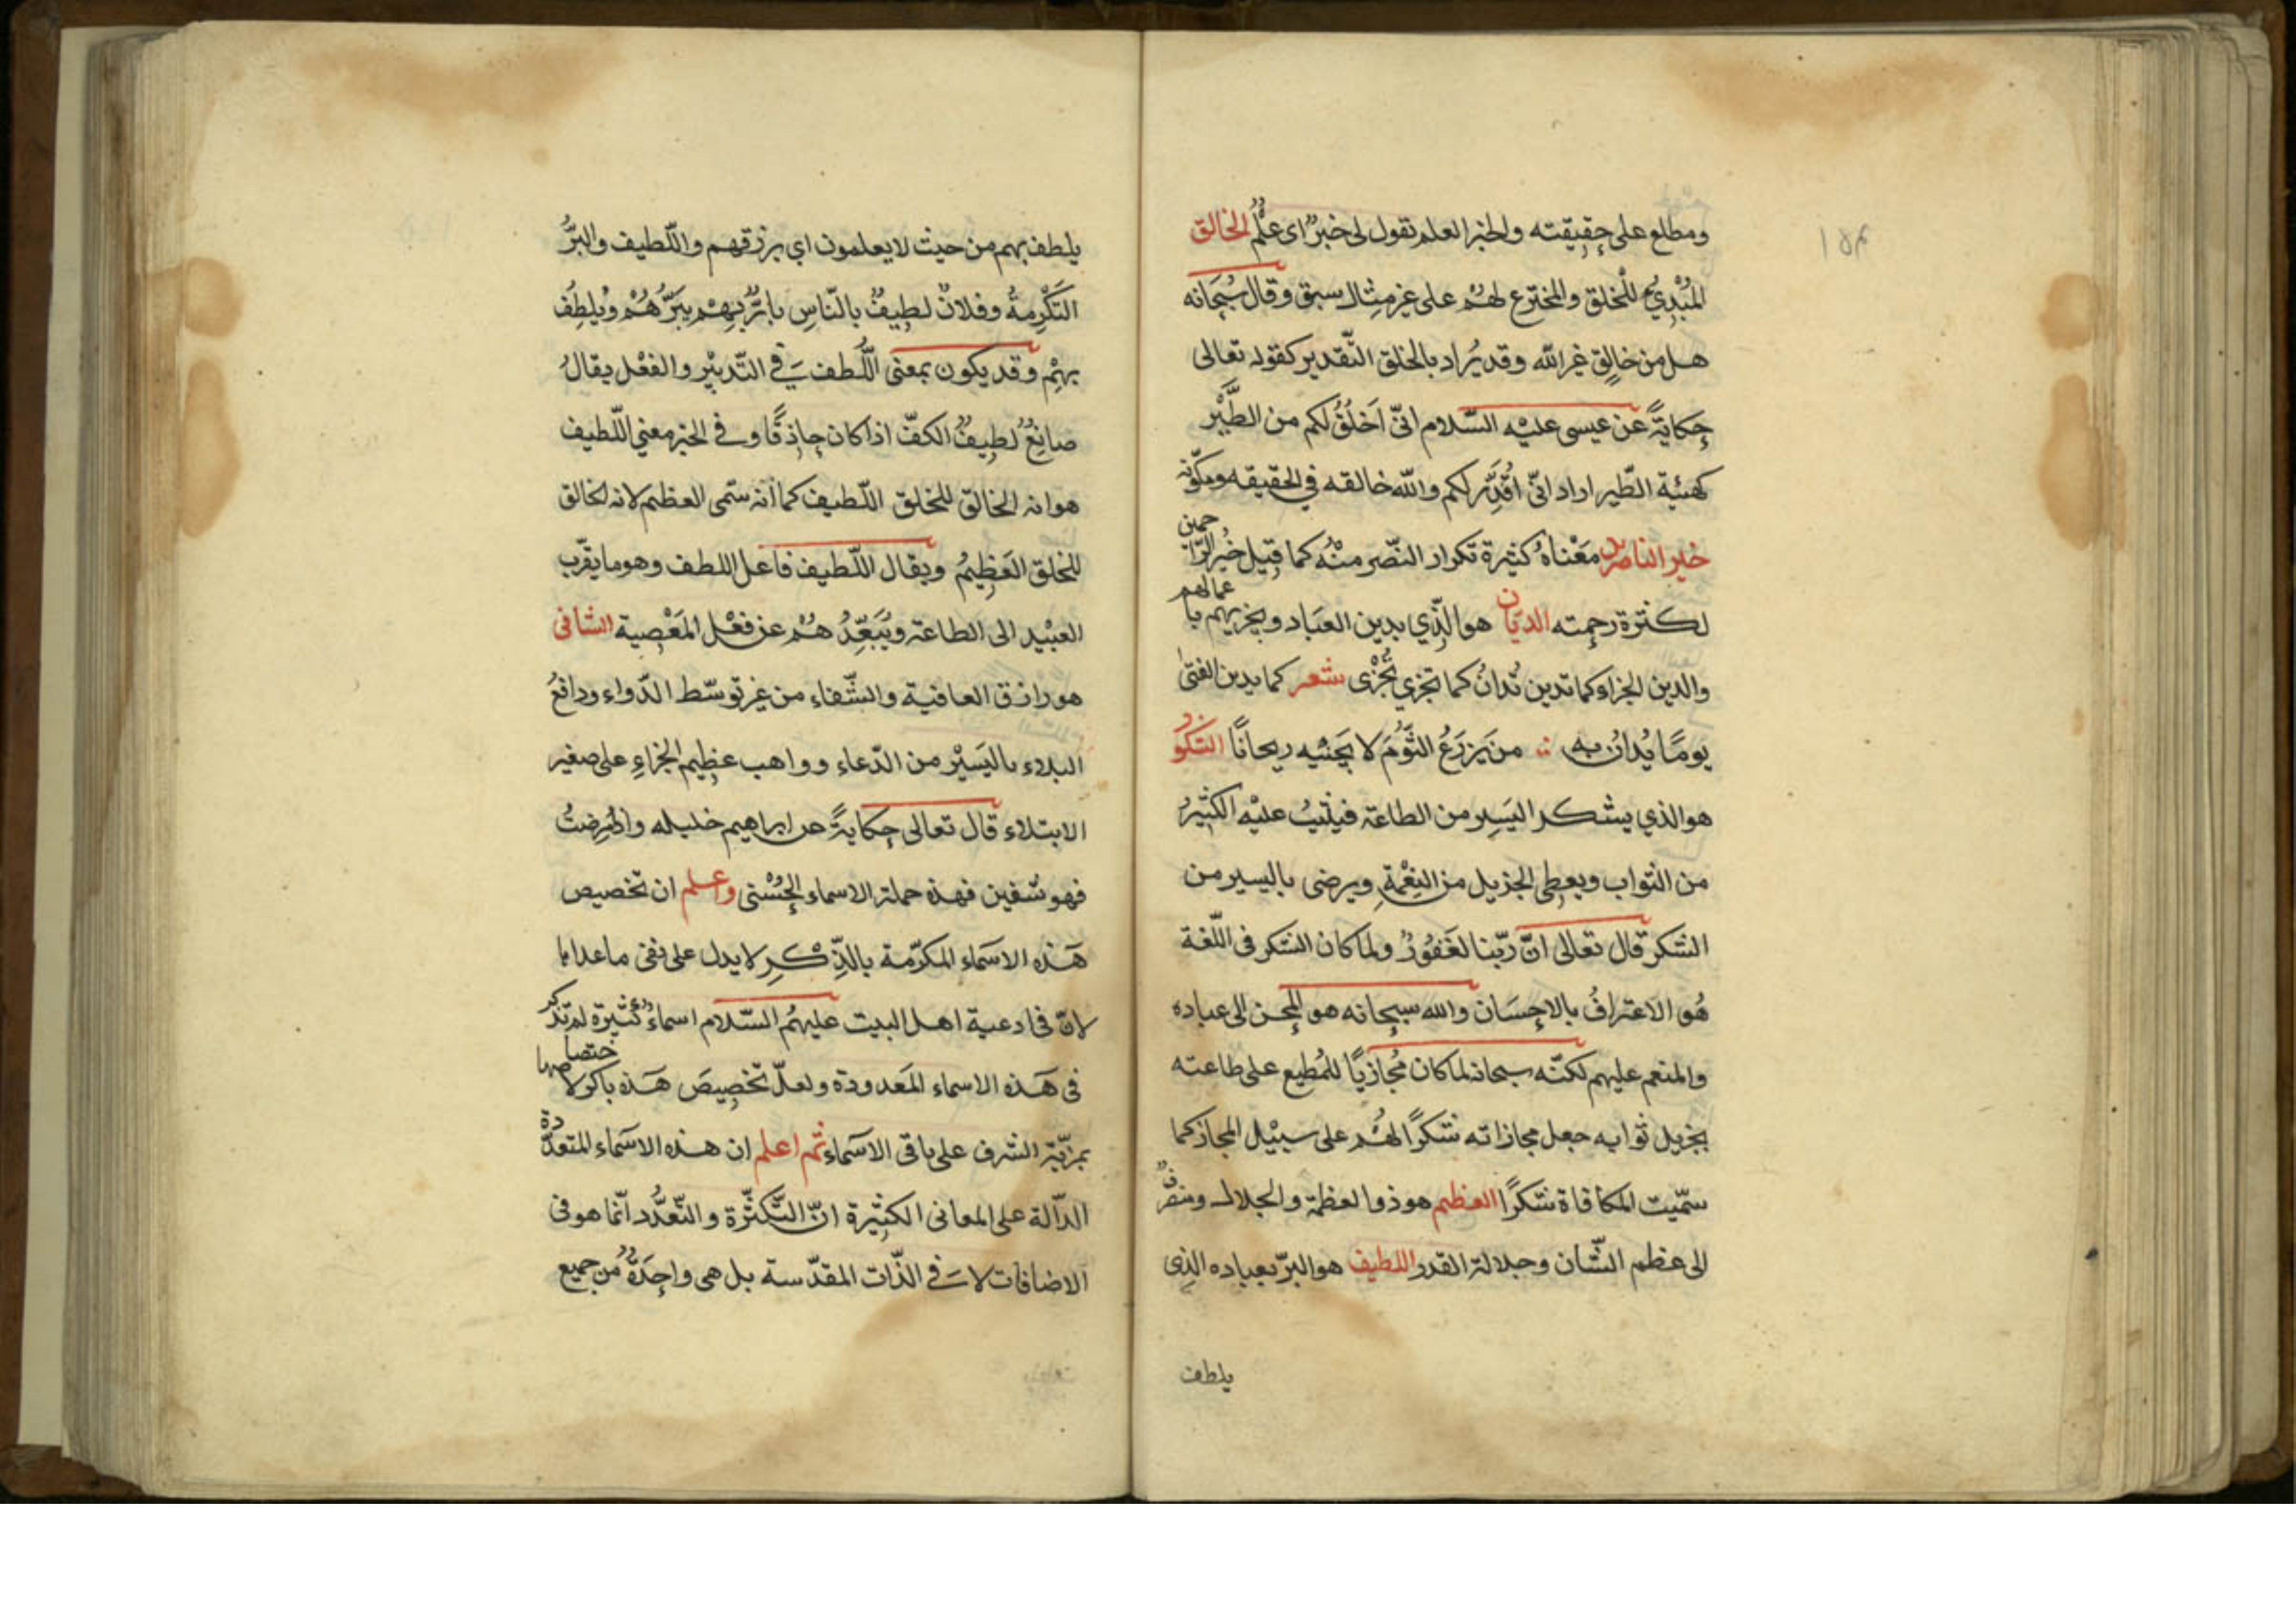 ١٥٣
ومطلع على حقيقته والخبر العلم تقول لى خبرٌ اى علمٌ الخالق
المُبْدِئُ للخلق والمخترع لهُم على غير مثال سبق وقال سُبحَانه
هل من خالِق غير الله وقد يُراد بالخلق التّقدير كقوله تعالى
حِكايَةً عَن عيسى عليْه السّلام انىّ اَخلُقُ لكم من الطَّيْر
كهيئة الطّير اراد انىّ اُقَدِّر لكم والله خالقه في الحقيقه ومكوّنه
خير الناصرين مَعْناهُ كثيرة تكرار النّصر منْه كما قيل خيْر الرّاحمين
لكثرة رحمته الديّان هو الّذي يدين العبَاد ويجزيهم باعمالهم
والدين الجزاء كما تدين تُدانُ كما تجزي تُجْزى شعر كما يدين الفتىٰ
يومًا يُدانُ به من يَزرَعُ الثَّوْمَ لا يَجنيْه ريحانًا الشكور
هو الذي يشكر اليَسِير من الطاعة فيثيبُ عليْه الكثيْرُ
من الثواب ويعطى الجزيل من النِعْمَةِ ويرضى باليسير من
الشكر قال تعالى انَّ رَبّنا لغَفُورٌ ولما كان الشكر فى اللّغة
هُو الاعترافُ بالاحسَان والله سبحانه هو المحسن الى عباده
والمنعم عليهم لكنّه سبحانه لما كان مُجازيًا للمُطيع على طاعته
بجزيل ثوابه جعل مجازاته شكرًا لهُم على سبيْل المجاز كما
سمّيت المكافاة شكرًا العظيم هو ذو العظمة والجلال ومنصرفٌ
الى عظم الشّان وجلالة القدر اللطيف هو البرّ بعباده الذى
يلطف
يلطف بهم من حيث لا يعلمون اي برزقهم واللّطيف والبرُّ
التَكْرِمةُ وفلانٌ لطِيفٌ بالنّاسِ بارٌّ بهِمْ يبَرُّهُمْ ويُلطِفُ
بهِمْ وقد يكون بمعنى اللّطف فِي التّدبيْر والفعْل يقالُ
صانِعٌ لطِيفٌ الكفّ اذا كان حاذِقًا وفي الخبر معنى اللّطيف
هو انه الخالق للخلق اللّطيف كما أنه سمّى العظيم لانه الخالق
للخلق العَظِيمُ ويقال اللّطيف فاعل اللطف وهو ما يقرّب
العبْيد الى الطاعة ويُبَعِّدُ هُم عن فعْل المَعْصِية الشافى
هو رازق العافية والشّفاء من غير توسّط الدّواء ودافعُ
البلاء باليَسيْر من الدّعاء وواهب عظِيم الجزاءِ على صغير
الابتلاء قال تعالى حِكايةً عن ابراهيم خليله واذا مرِضتُ
فهو يشفين فهذه جملة الاسماء الحُسْنى واعلم ان تخصيص
هَذه الاسَماء المكرّمة بالذِّكرِ لا يدل على نفى ما عداها
لانّ فى ادعية اهل البيت عليهُم السّلام اسماءً كثيْرة لم تذكر
فى هَذه الاسماء المَعدودة ولعلّ تخصِيصَ هَذه بالذكر لاختصاصها
بمزيّة الشرف على باقى الاسَماء ثم اعلم ان هذه الاسَماء المتعدّدة
الدّالة على المعانى الكثيْرة انّ التّكثّرة والتّعدُّد انّما هو فى
الاضافات لا فِي الذّات المقدّسة بل هى واحِدَةٌ من جميع